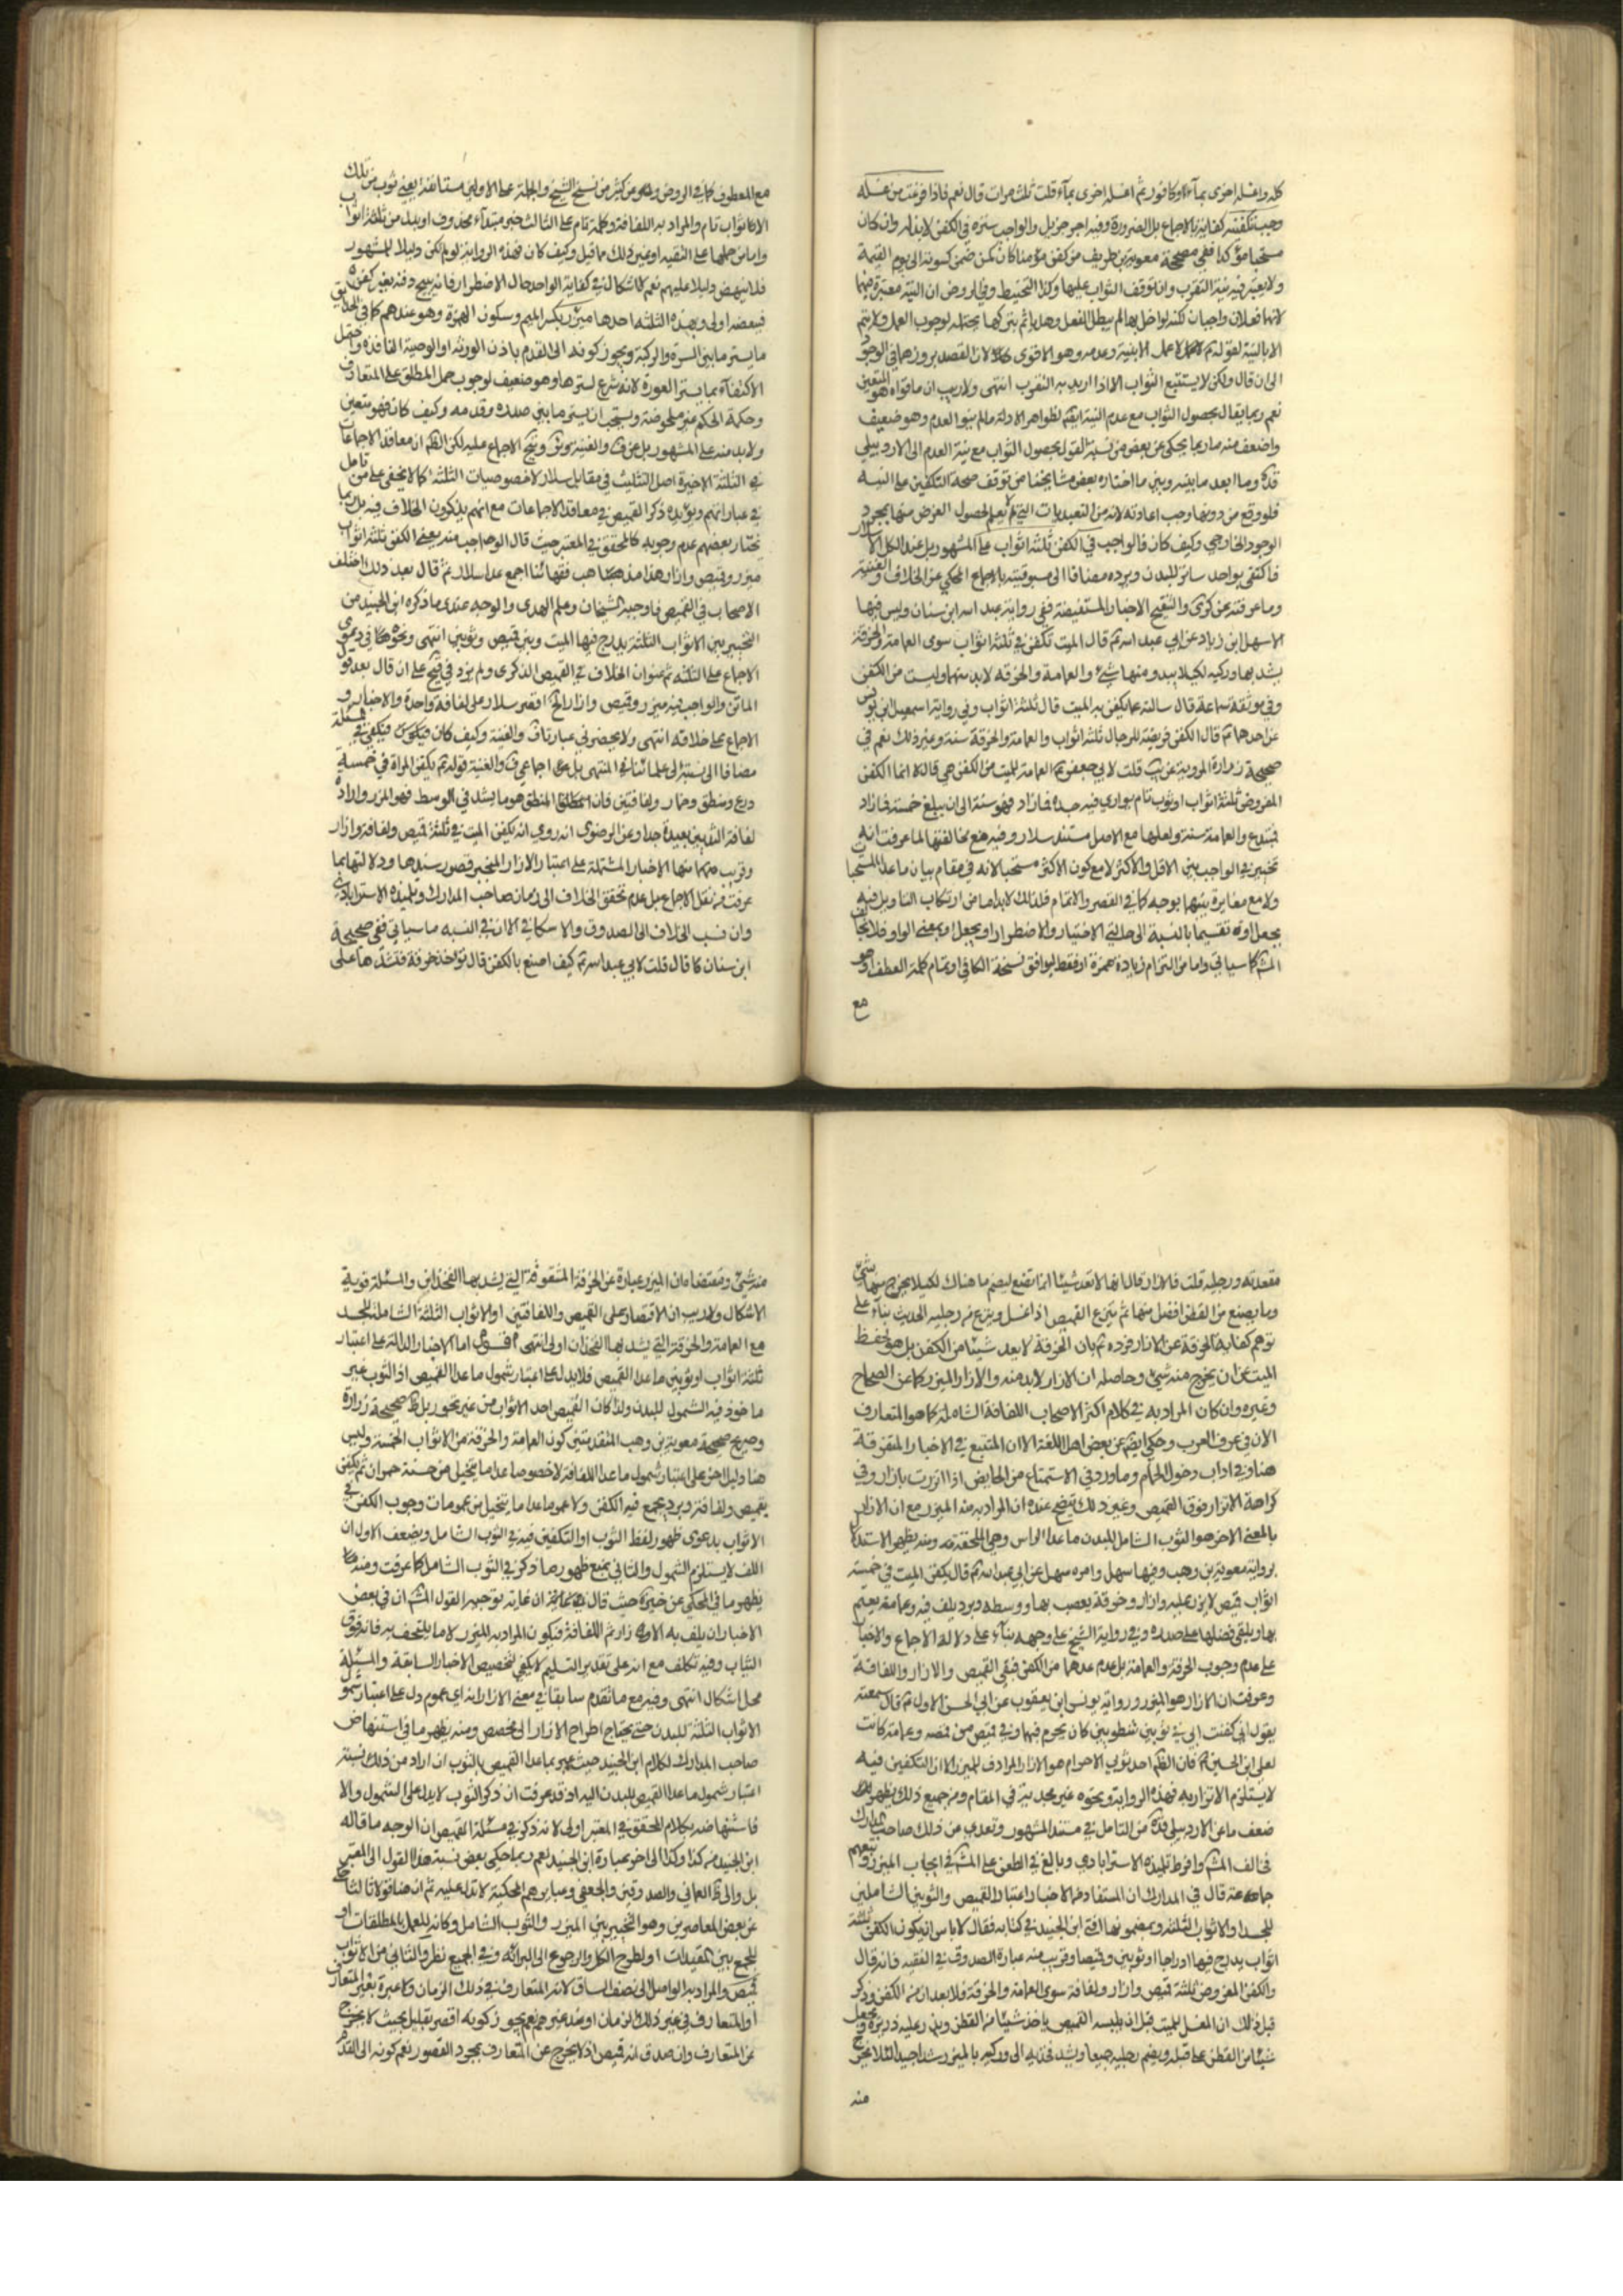 كله واغسله اخرى بمآء وكافور ثم اغسله اخرى بمآء قلت ثلث مرات قال نعم فاذا فرغت من غسله
وجب تكفينه كفاية بالاجماع بل الضرورة وفيه اجر جزيل والواجب ستره في الكفن لا بذله وان كان
مستحبا مؤكدا ففي صحيحة بن طريف من كفن مؤمنا كان كمن ضمن كسوته الى يوم القيمة
ولا يعتبر فيه نية التقرب وان توقف الثواب عليها وكذا التحنيط وفي الروض ان النية معتبرة فيهما
لانهما فعلان واجبان لكن لو اخل بها لم يبطل الفعل وهل ياثم بتركها يحتمله لوجوب العمل ولا يتم
الا بالنية لقوله لا عمل الا بنية وعدمه وهو الاقوى لان القصد بروزهما في الوجود
الى ان قال ولكن لا يستتبع الثواب الا اذا اريد به التقرب انتهى ولا ريب ان ما قواه هو المتعين
نعم ربما يقال بحصول الثواب مع عدم النية ايضا لظواهر الادلة ما لم ينو العدم وهو ضعيف
واضعف منه ما ربما يحكى عن بعض من نسبة القول بحصول الثواب مع نية العدم الى الاردبيلي
قده وما ابعد ما بينه وبين ما اختاره بعض مشايخنا من توقف صحة التكفين على النية
فلو وقع من دونها وجب اعادته لانه من التعبديات التي لم يعلم حصول الغرض منها بمجرد
الوجود الخارجي وكيف كان فالواجب في الكفن ثلثة اثواب على المشهور بل عند الكل الا سلار
فاكتفى بواحد ساتر للبدن ويرده مضافا الى مسبوقيته بالاجماع المحكي عن الخلاف والغنية
وما عرفته عن كرى والتنقيح الاخبار المستفيضة ففي رواية عبد الله ابن سنان وليس فيها
الا سهل ابن زياد عن ابي عبد الله قال الميت تكفن في ثلثة اثواب سوى العمامة والخرقة
يشد بها وركيه لكيلا يبدو منها شيء والعمامة والخرقة لا بد منهما وليست من الكفن
وفي موثقة سماعة قال سالته عما يكفن به الميت قال ثلثة اثواب وفي رواية اسمعيل ابن يونس
عن احدهما قال الكفن فريضة للرجال ثلثة اثواب والعمامة والخرقة سنة وغير ذلك نعم في
صحيحة زرارة المروية عن يب قلت لابي جعفر العمامة للميت من الكفن هي قال لا انما الكفن
المفروض ثلثة اثواب او ثوب تام يواري فيه جسده فما زاد فهو سنة الى ان يبلغ خمسة فما زاد
فمبتدع والعمامة سنة ولعلها مع الاصل مستند سلار وفيه مع مخالفتها لما عرفت انه
تخيير في الواجب بين الاقل والاكثر لا مع كون الاكثر مستحبا لانه في مقام بيان ما عدا المستحبات
ولا مع مغايرة بينهما بوجه كما في القصر والاتمام فلذلك لا بد اما من ارتكاب التاويل فيه
بجعل او تقسيما بالنسبة الى حالتي الاختيار والاضطرار او بجعل او بمعنى الواو فلا يخالف
المش كما سياتي واما من التزام زيادة همزة او فقط ليوافق نسخة الكافي او تمام كلمة العطف او هو
مع
مع المعطوف كما في الروض وعن كثير من نسخ الشيخ والجملة على الاولين مستانفة يعني ثوب من تلك
الاثواب تام والمراد به اللفافة وكلمة تام على الثالث خبر مبتداء محذوف او بدل من ثلثة اثواب
واما من حملها على التقية او غير ذلك مما قيل وكيف كان فهذه الرواية لو لم تكن دليلا للمشهور
فلا تنهض دليلا عليهم نعم لا اشكال في كفاية الواحد حال الاضطرار فانه يبيح دفنه بغير كفن
فببعضه اولى وبهذه الثلثة احدها ميزر بكسر الميم وسكون الهمزة وهو عندهم كما في الحدائق
ما يستر ما بين السرة والركبة ويجوز كونه الى القدم باذن الورثة او الوصية النافذة واحتمل
الاكتفاء بما يستر العورة لانه شرع لسترها وهو ضعيف لوجوب حمل المطلق على المتعارف
وحكمة الحكم غير ملحوظة ويستحب ان يستر ما بين صدره وقدمه وكيف كان فهو متعين
ولا بد منه على المشهور بل عن ف والغنية الاجماع عليه لكن الظاهر ان معاقد الاجماعات
في الثلثة الاخيرة اصل التثليث في مقابل سلار لا خصوصيات الثلثة كما لا يخفى على من تامل
في عباراتهم ويؤيده ذكر القميص في معاقد الاجماعات مع انهم يذكرون الخلاف فيه بل ربما
يختار بعضهم عدم وجوبه كالمحقق في المعتبر حيث قال الواجب منه يعني الكفن ثلثة اثواب
ميزر وقميص وازار هذا مذهب فقهائنا اجمع عدا سلار ثم قال بعد ذلك اختلف
الاصحاب في القميص فاوجبه الشيخان وعلم الهدى والوجه عندي ما ذكره ابن الجنيد من
التخيير بين الاثواب الثلثة يدرج فيها الميت وبين قميص وثوبين انتهى ونحوه في دعوى
الاجماع على الثلثة ثم عنوان الخلاف في القميص الذكرى ولم يزد في على ان قال بعد قول
الماتن والواجب فيه ميزر وقميص وازار الخ اقتصر سلار على لفافة واحدة والاخبار و
الاجماع على خلافه انتهى ولا يحضرني عبارة ف والغنية وكيف كان فيكفي في المسئلة
مضافا الى نسبته الى علمائنا في المنتهى بل اجماعي ف والغنية قوله يكفن المراة في خمسة
درع ومنطق وخمار ولفافتين فان المنطق هو ما يشد في الوسط فهو الميزر وارادة
لفافة الثديين بعيدة جدا وعن الرضوي انه روي انه يكفن الميت في ثلثة قميص ولفافة وازار
وقريب منهما الاخبار المشتملة على اعتبار الازار المنجبر قصور سندها ودلالتها بما
عرفت من نقل الاجماع بل عدم تحقق الخلاف الى زمان صاحب المدارك وتلميذه الاسترابادي
وان نسب الخلاف الى الصدوق والاسكافي الا ان في النسبة ما سياتي ففي صحيحة
ابن سنان قال قلت لابي عبد الله كيف اصنع بالكفن قال تؤخذ خرقة فتشد بها على
مقعدته ورجليه قلت فالازار قال انها لا تعد شيئا انما تصنع ليضم ما هناك لكيلا يخرج منها شيء
وما يصنع من القطن افضل منهما ثم ينزع القميص اذا غسل وينزع من رجليه الحديث بناء على
توهم كفاية الخرقة عن الازار فرده بان الخرقة لا يعد شيئا من الكفن بل هو لحفظ
الميت عن ان يخرج منه شيئ وحاصله ان الازار لا بد منه والازار الميزر كما عن الصحاح
وغيره وان كان المراد به في كلام اكثر الاصحاب اللفافة الشاملة كما هو المتعارف
الان في عرف العرب وحكي ايضا عن بعض اهل اللغة الا ان المتتبع في الاخبار المتفرقة
هنا وفي اداب دخول الحمام وما ورد في الاستمتاع من الحايض اذا اتزرت بازار وفي
كراهة الاتزار فوق القميص وغير ذلك يتضح عنده ان المراد به هذا الميزر مع ان الازار
بالمعنى الاخر هو الثوب الشامل للبدن ما عدا الراس وهي الملحفة ومنه يظهر الاستدلال
برواية معوية بن وهب وفيها سهل وامره سهل عن ابي عبد الله قال يكفن الميت في خمسة
اثواب قميص لا يزر عليه وازار وخرقة يعصب بها ووسطه وبرد يلف فيه وعمامة يعتم
بها ويلقى فضلها على صدره وفي رواية الشيخ على وجهه بناء على دلالة الاجماع والاخبار
على عدم وجوب الخرقة والعمامة بل عدم عدهما من الكفن فبقي القميص والازار واللفافة
وعرفت ان الازار هو الميزر ورواية يونس ابن يعقوب عن ابي الحسن الاول قال سمعته
يقول اني كفنت ابي في ثوبين شطويين كان يحرم فيهما وفي قميص من قمصه وعمامة كانت
لعلي ابن الحسين فان الظاهر احد ثوبي الاحرام هو الازار المرادف للميزر الا ان التكفين فيه
لا يستلزم الاتزار به فهذه الرواية ونحوه غير مجدية في المقام ومن جميع ذلك يظهر
ضعف ما عن الاردبيلي قده من التامل في مستند المشهور وتعدى من ذلك صاحب المدارك
فخالف المش وافرط تلميذه الاسترابادي وبالغ في الطعن على المش في ايجاب الميزر وتبعهم
جماعة قال في المدارك ان المستفاد من الاخبار اعتبار القميص والثوبين الشاملين
للجسد او الاثواب الثلثة وبمضمونها افتى ابن الجنيد في كتابه فقال لا باس ان يكون الكفن ثلثة
اثواب يدرج فيها ادراجا او ثوبين وقميصا وقريب منه عبارة الصدوق في الفقيه فانه قال
والكفن المفروض ثلثة قميص وازار ولفافة سوى العمامة والخرقة فلا يعدان من الكفن وذكر
قبل ذلك ان المغسل للميت قبل ان يلبسه القميص ياخذ شيئا من القطن وينثر عليه ذريرة ويجعل
شيئا من القطن على قبله ويضم رجليه جميعا ويشد فخذيه الى وركيه بالميزر شدا جيدا لئلا يخرج
منه
منه شيئ ومقتضاه ان الميزر عبارة عن الخرقة المشقوقة التي يشد بها الفخذان والمسئلة قوية
الاشكال ولا ريب ان الاقتصار على القميص واللفافتين او الاثواب الثلثة الشاملة للجسد
مع العمامة والخرقة التي يشد بها الفخذان اولى انتهى اقول اما الاخبار الدالة على اعتبار
ثلثة اثواب او ثوبين ما عدا القميص فلا يدل على اعتبار شمول ما عدا القميص اذ الثوب غير
ماخوذ فيه الشمول للبدن ولذا كان القميص احد الاثواب من غير تجوز بل ظ صحيحة زرارة
وصريح صحيحة معوية بن وهب المتقدمتين كون العمامة والخرقة من الاثواب الخمسة وليس
هنا دليل اخر على اعتبار شمول ما عدا اللفافة لا خصوصا عدا ما يتخيل من حسنة حمران ثم يكفن
بقميص ولفافة وبرد يجمع فيه الكفن ولا عموما عدا ما يتخيل من عمومات وجوب الكفن في
الاثواب بدعوى ظهور لفظ الثوب او التكفين فيه في الثوب الشامل ويضعف الاول ان
اللف لا يستلزم الشمول والثاني بمنع ظهور ما ذكر في الثوب الشامل كما عرفت ومنه
يظهر ما في المحكي عن حيث قال ان غاية توجيه القول المش ان في بعض
الاخبار ان يلف به الازار ثم اللفافة فيكون المراد به الميزر لا ما يلتحف به فانه فوق
الثياب وفيه تكلف مع انه على تقدير التسليم لا يكفي لتخصيص الاخبار السابقة والمسئلة
محل اشكال انتهى وفيه مع ما تقدم سابقا في معنى الازار انه اي عموم دل على اعتبار شمول
الاثواب الثلثة للبدن حتى يحتاج اطراح الازار الى مخصص ومنه يظهر ما في استنهاض
صاحب المدارك لكلام ابن الجنيد حيث عبر بما عدا القميص بالثوب ان اراد من ذلك نسبة
اعتبار شمول ما عدا القميص للبدن اليه اذ قد عرفت ان ذكر الثوب لا يدل على الشمول والا
فاستنهاضه بكلام المحقق في المعتبر اولى لانه ذكر في مسئلة القميص ان الوجه ما قاله
ابن الجنيد من كذا وكذا الى اخر عبارة ابن الجنيد نعم ربما حكى بعض نسبة هذا القول الى المعتبر
بل والى ظ العماني والصدوقين والجعفي وعبايرهم المحكية لا تدل عليه ثم ان هنا قولا ثالثا حكي
عن بعض المعاصرين وهو التخيير بين الميزر والثوب الشامل وكانه للعمل بالمطلقات او
للجمع بين المقيدات او لطرح الكل والرجوع الى البرائة وفي الجميع نظر والثاني من الاثواب
قميص والمراد به الواصل الى نصف الساق لانه المتعارف في ذلك الزمان ولا عبرة بغير المتعارف
او المتعارف في غير ذلك الزمان او عند غيرهم نعم يجوز كونه اقصر بقليل بحيث لا يخرج
عن المتعارف وان صدق انه قميص اذ لا يخرج عن المتعارف بمجرد القصور نعم كونه الى القدم